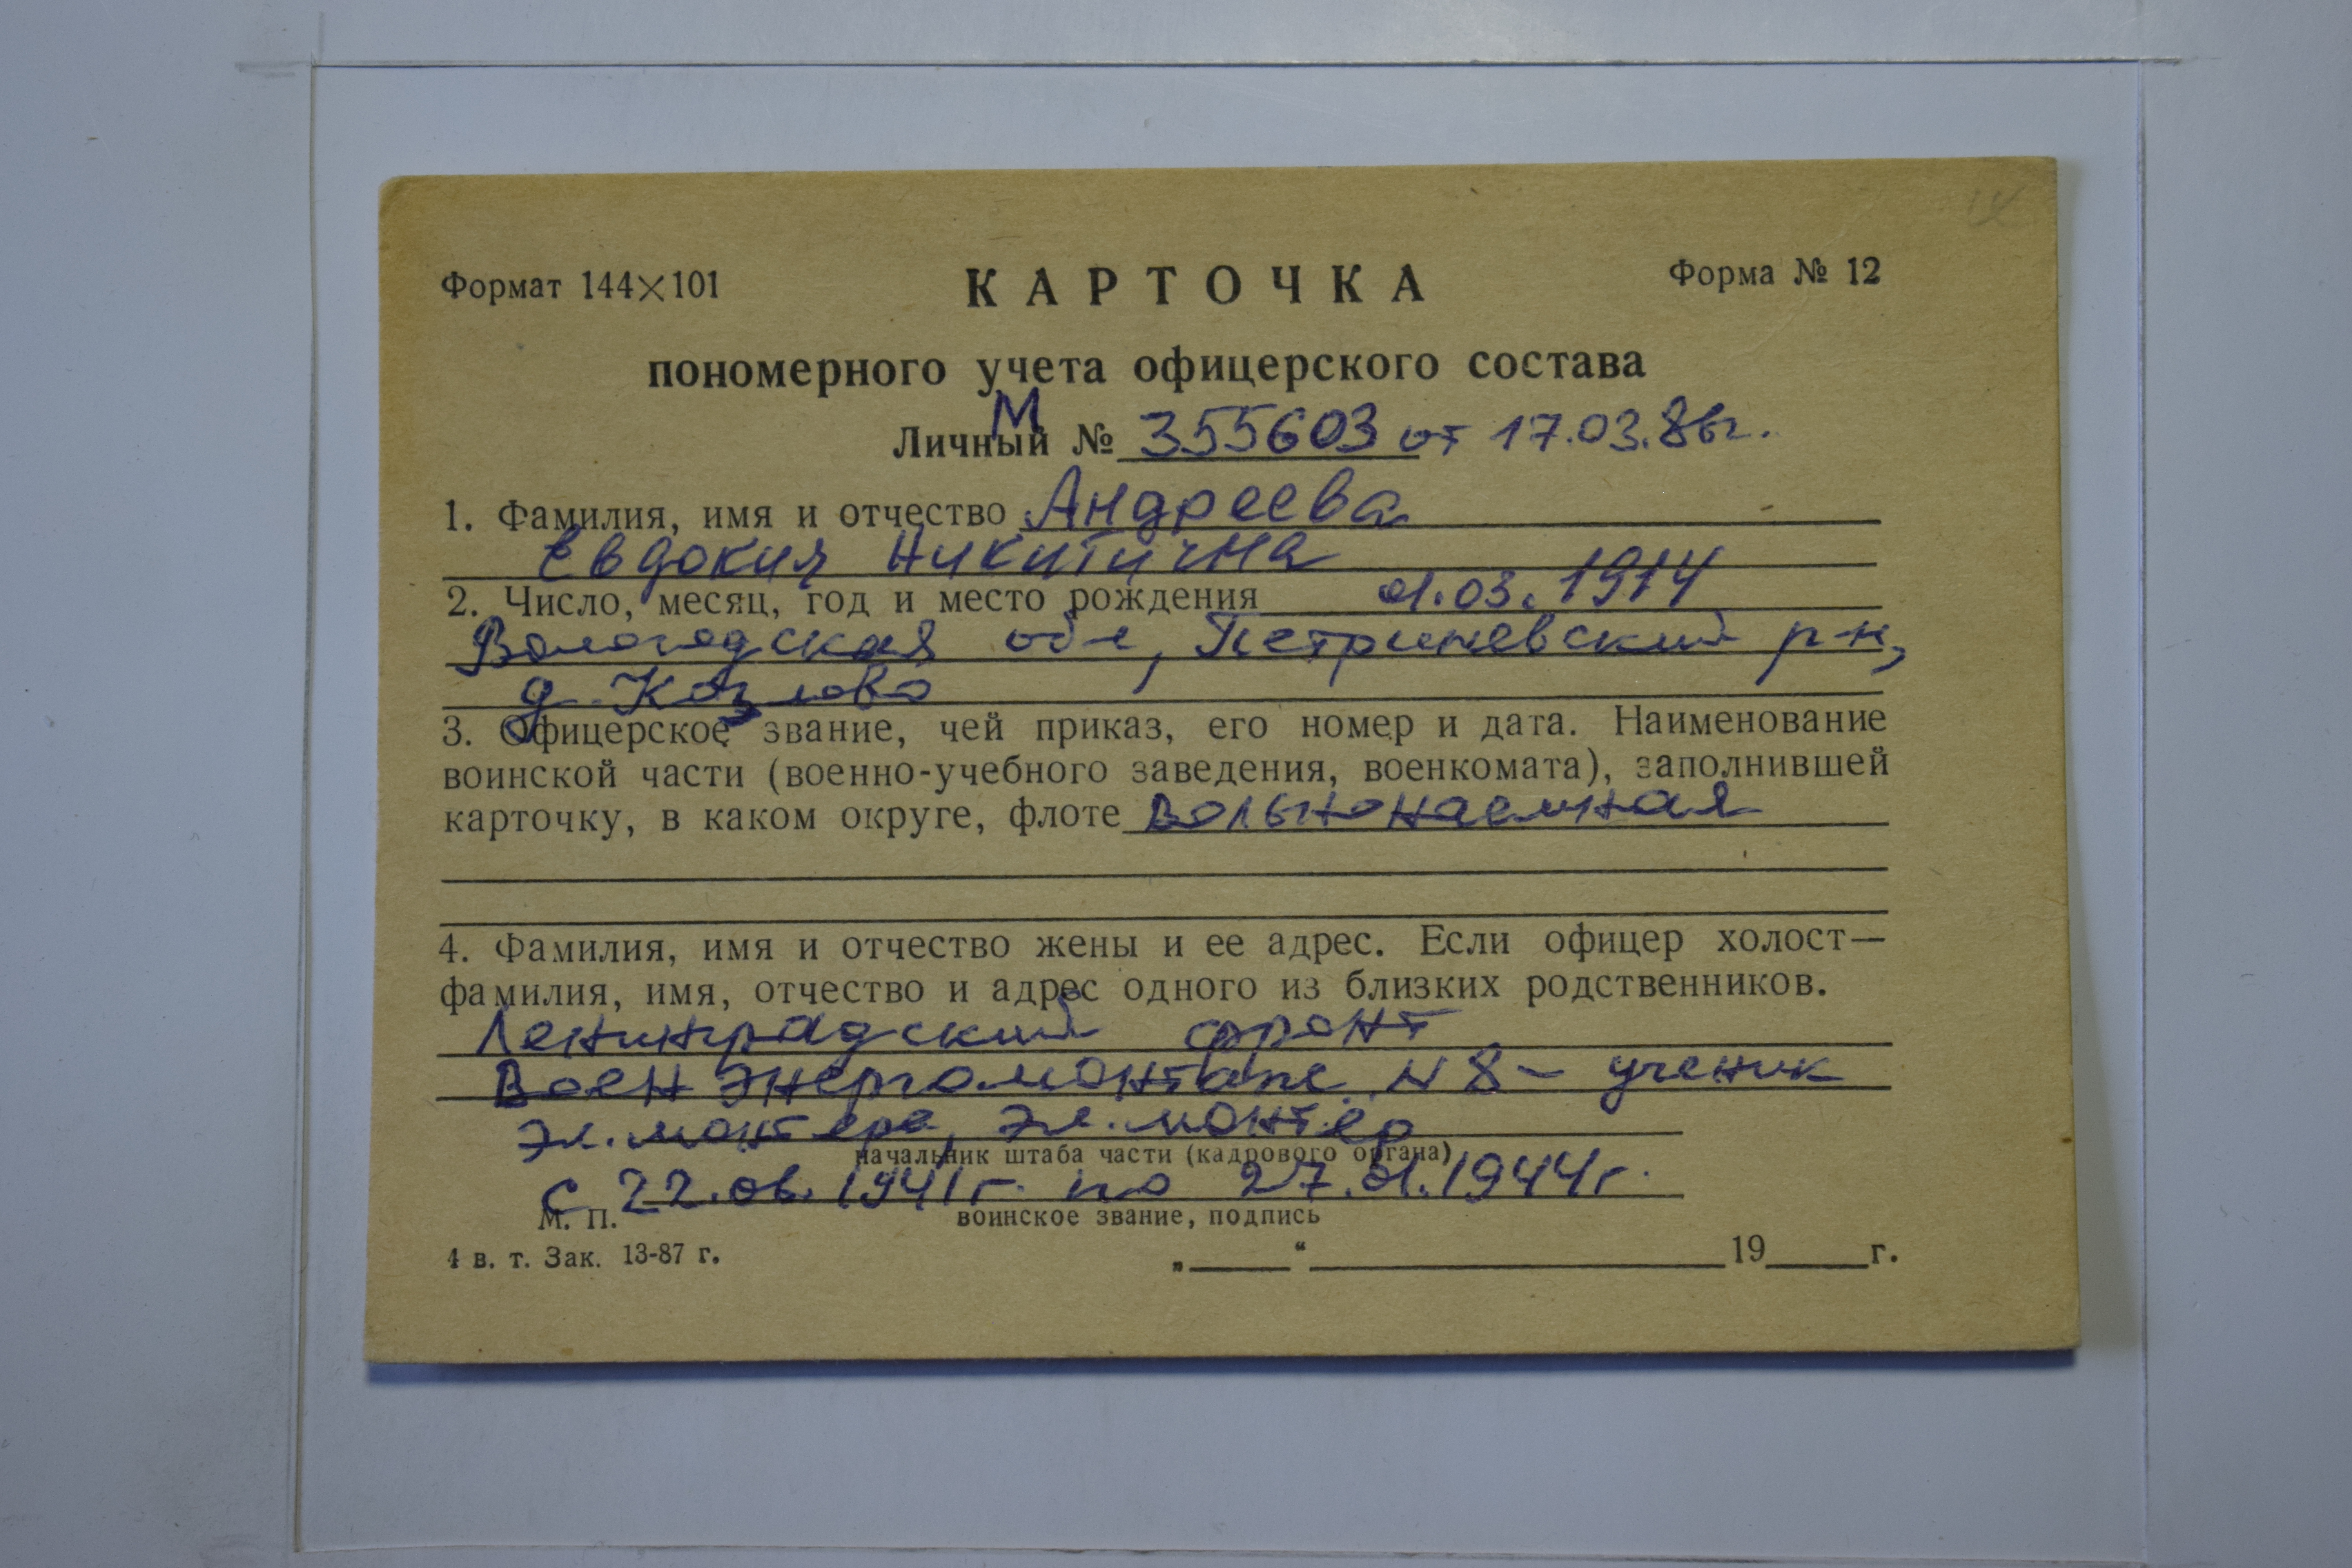 Формат 144×101 КАРТОЧКА Форма № 12
пономерного учета офицерского состава
М
Личный № 355603 от 17.03.86г.
1. Фамилия, имя и отчество Андреева
Евдокия Никитична
2. Число, месяц, год и место рождения 01.03.1914
Вологодская обл, Петриневский р-н,
д. Козлово
3. Офицерское звание, чей приказ, его номер и дата. Наименование
воинской части (военно-учебного заведения, военкомата), заполнившей
карточку, в каком округе, флоте вольнонаемная
4. Фамилия, имя и отчество жены и ее адрес. Если офицер холост—
фамилия, имя, отчество и адрес одного из близких родственников.
Ленинградский фронт
Военэнергомонтаж N 8 – ученик
эл.монтера, эл.монтер
начальник штаба части (кадрового органа)
с 22.06.1941г. по 27.01.1944г.
М. П. воинское звание, подпись
4 в. т. Зак. 13-87 г. „ “ 19 г.